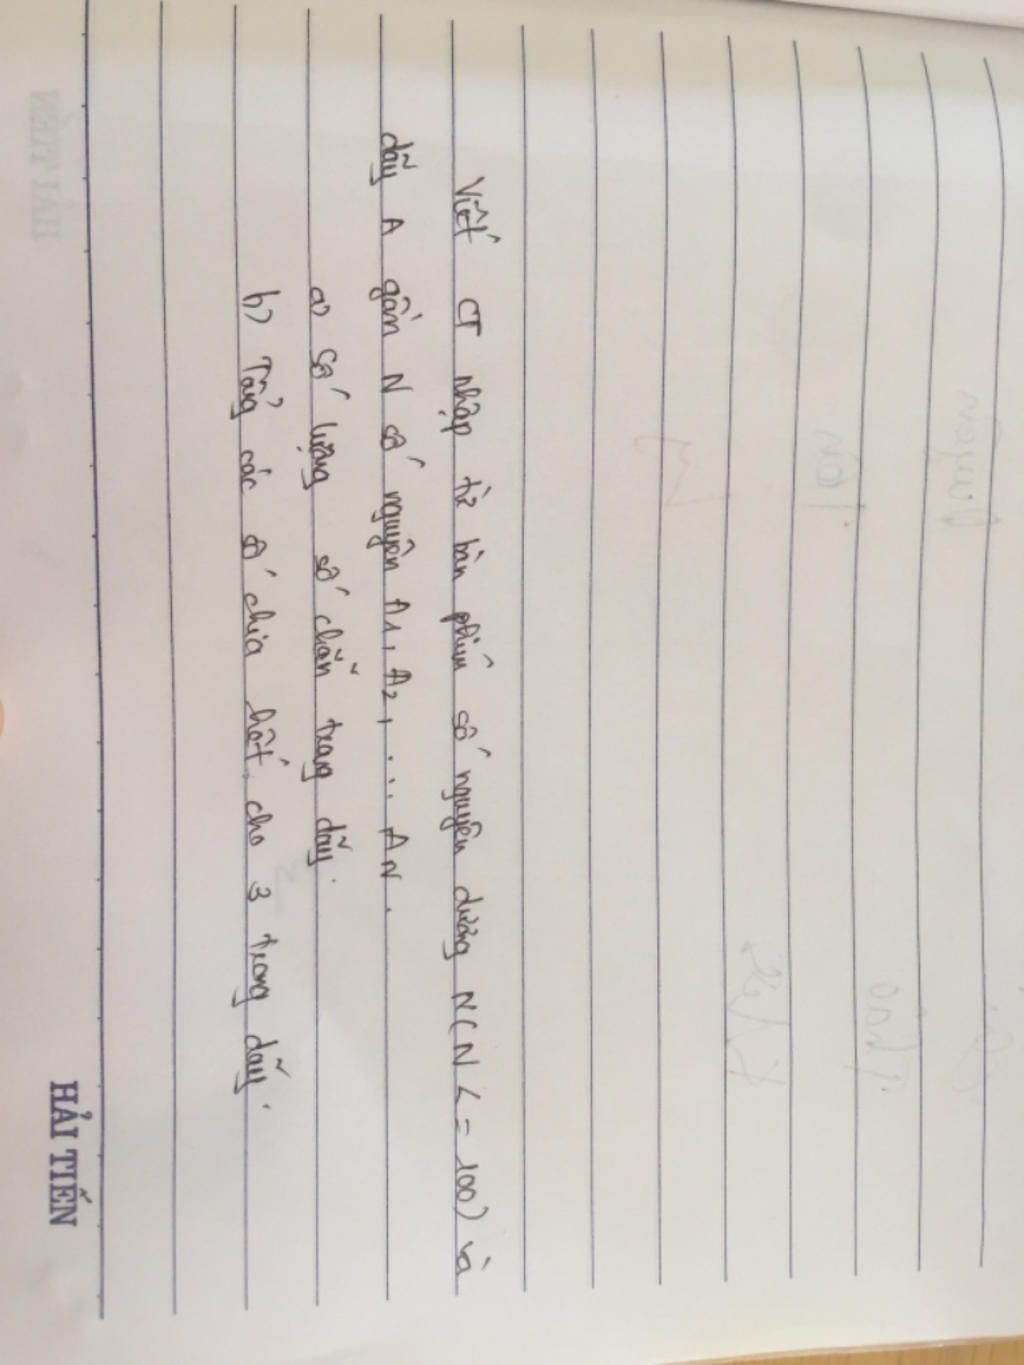 Viết CT nhập từ bàn phím số nguyên dương N(N <= 100) và
dãy A gồm N số nguyên A1, A2, ... AN.
a) Số lượng số chẵn trong dãy.
b) Tổng các số chia hết cho 3 trong dãy.
HẢI TIẾN